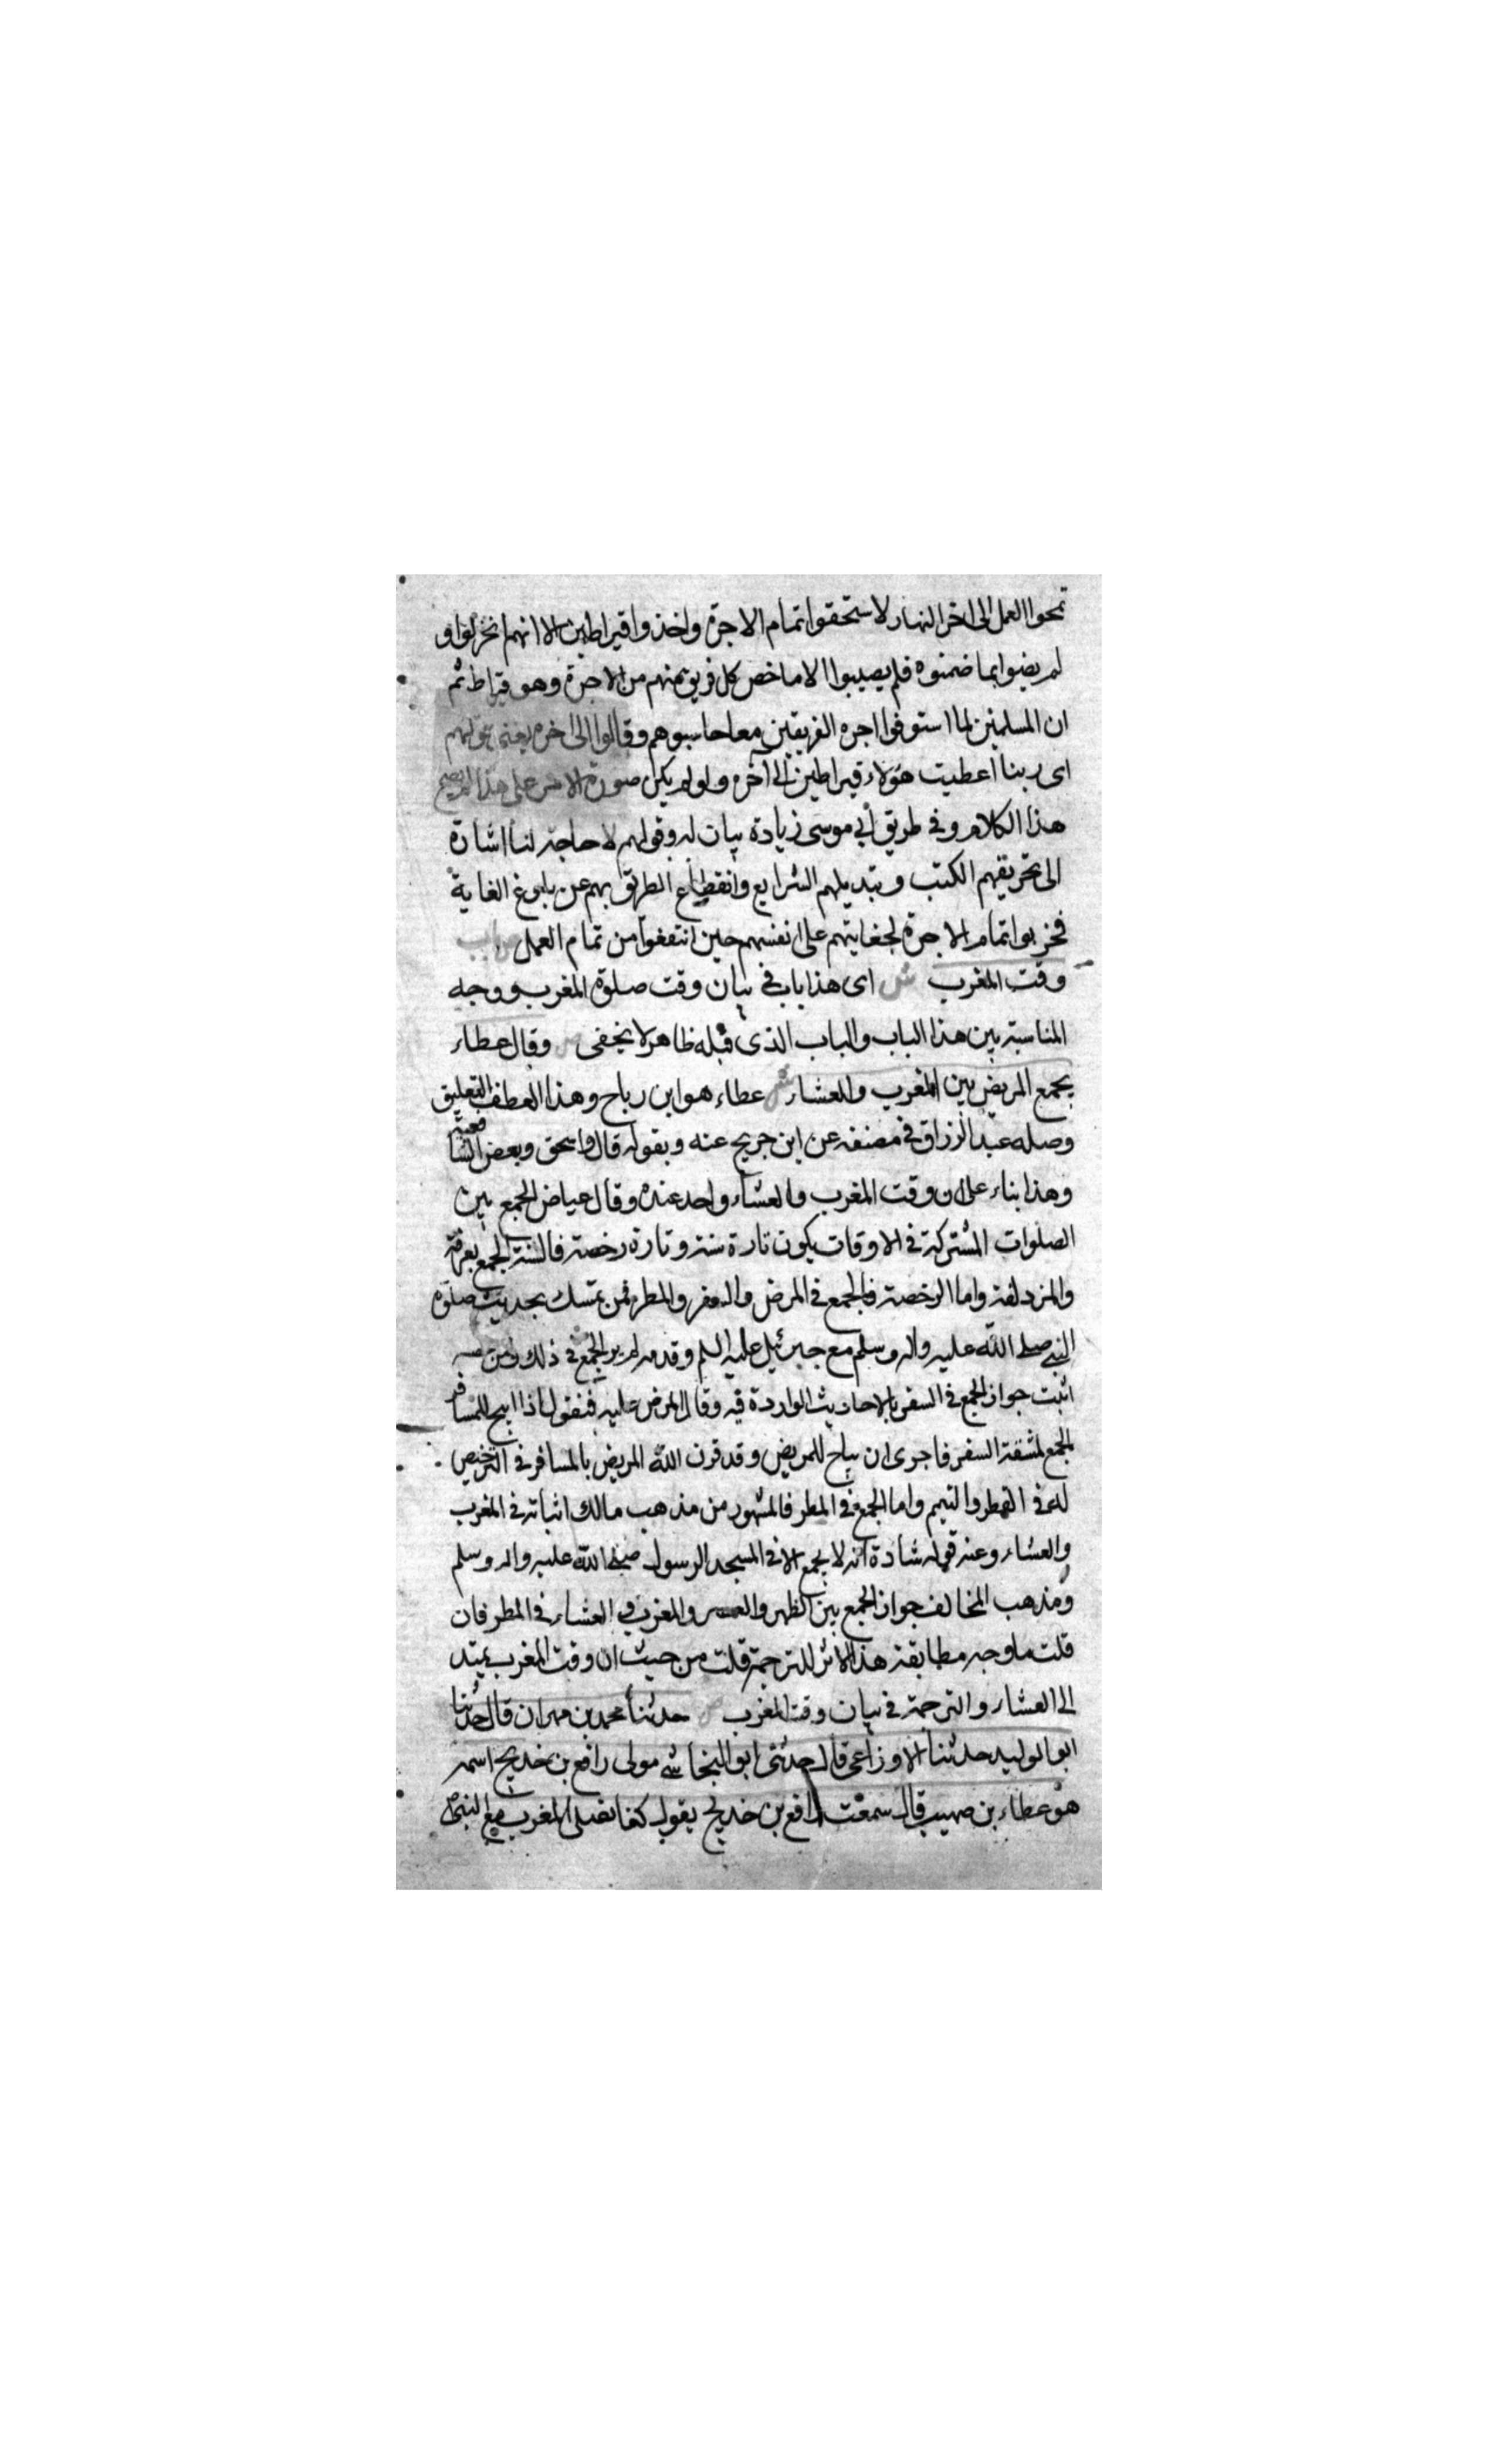 تمحوا العمل الى اخر النهار لاستحقوا تمام الاجرة واخذوا قيراطين الا انهم انخزلوا و
لم يضوا بما ضمنوه فلم يصيبوا الا ما خص كل فريق منهم من الاجرة وهو قيراط ثم
ان المسلمين لما استوفوا اجره الفريقين معا حاسبوهم وقالوا الى اخره يعنى قولهم
اى ربنا اعطيت هؤلاء قيراطين الى آخره ولو لم يكن صورة الامر على هذا لم يصح
هذا الكلام وفى طريق أبي موسى زيادة بيان له وقولهم لا حاجة لنا اشارة
الى تحريفهم الكتب وتبديلهم الشرايع وانقطاع الطريق بهم عن بلوغ الغاية
فخربوا تمام الاجرة لجغايتهم على انفسهم حين انتفعوا من تمام العمل ص باب
وقت المغرب ش اى هذا باب في بيان وقت صلوة المغرب ووجه
المناسبة بين هذا الباب والباب الذى قبله ظاهر لا يخفى ص وقال عطاء
يجمع المريض بين المغرب والعشاء ش عطاء هو ابن رباح وهذا العطف التعليق
وصله عبد الرزاق في مصنفه عن ابن جريج عنه وبقوله قال واسحق وبعض الشافعية
وهذا بناء على ان وقت المغرب والعشاء واحد عنده وقال عياض الجمع بين
الصلوات المشتركة فى الاوقات يكون تارة سنة وتارة رخصة فالسنة الجمع بعرفة
والمزدلفة واما الرخصة فالجمع فى المرض والسفر والمطر فمن تمسك بحديث صلوة
النبي صلى الله عليه واله وسلم مع جبرئيل عليه السلم وقدمه لم ير الجمع فى ذلك ومن
اثبت جواز الجمع فى السفر بالاحاديث الواردة فيه وقال المرض عليه فنقول اذا ابيح للمسافر
الجمع لمشقة السفر فاجرى ان يباح للمريض وقد قرن الله المريض بالمسافر فى الترخيص
له فى الفطر والتيمم واما الجمع فى المطر فالمشهور من مذهب مالك اثباته فى المغرب
والعشاء وعنه قوله شاذة انه لا يجمع الا فى المسجد الرسول صلى الله عليه واله وسلم
ومذهب المخالف جواز الجمع بين الظهر والعصر والمغرب و العشاء فى المطر فان
قلت ما وجه مطابقة هذا الاثر للترجمة قلت من حيث ان وقت المغرب يمتد
الى العشاء والترجمة فى بيان وقت المغرب ص حدثنا محمد بن مهران قال حدثنا
ابو الوليد حدثنا الاوزاعى قال حدثنى ابو النجاشي مولى رافع بن خديج اسمه
هو عطاء بن صهيب قال سمعت رافع بن خديج يقول كنا نصلى المغرب مع النبى